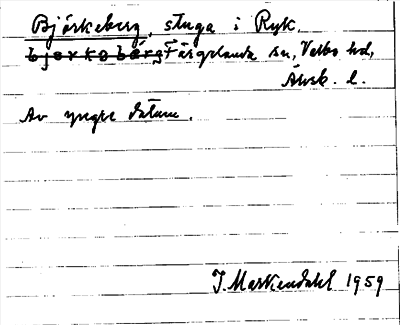 Björkeberg, stuga i Ryk,
björkobärg Färgelanda sn, Valbo hd,
Älvsb. l.
Av yngre datum.
I. Martiendahl 1959